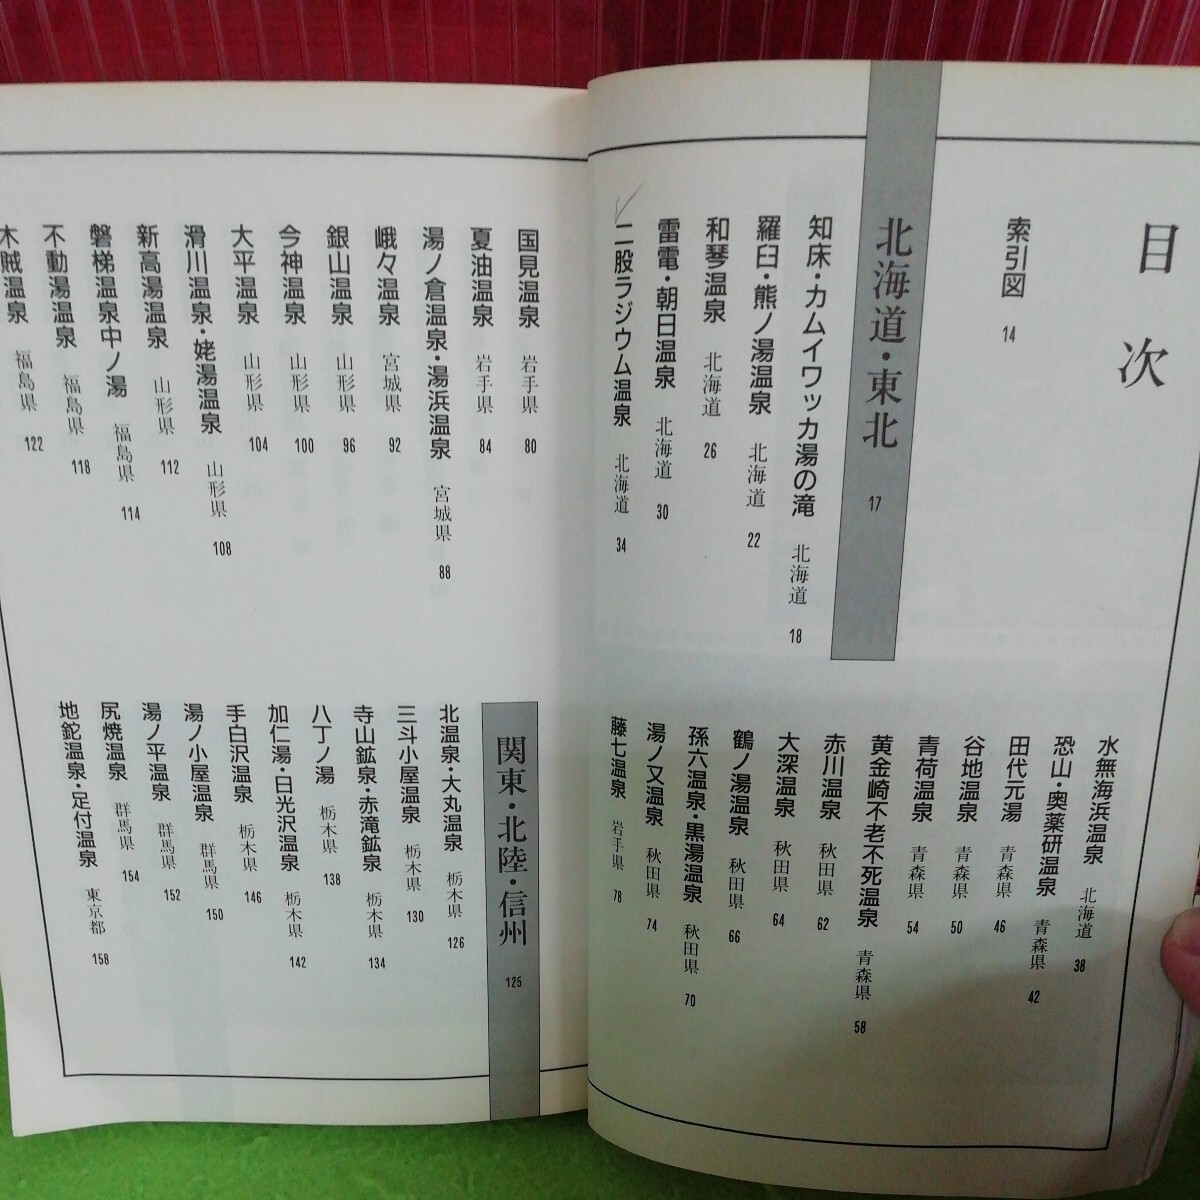 目次
索引図 14
北海道・東北 17
知床・カムイワッカ湯の滝 北海道 18
羅臼・熊ノ湯温泉 北海道 22
和琴温泉 北海道 26
雷電・朝日温泉 北海道 30
二股ラジウム温泉 北海道 34
水無海浜温泉 北海道 38
恐山・奥薬研温泉 青森県 42
田代元湯 青森県 46
谷地温泉 青森県 50
青荷温泉 青森県 54
黄金崎不老不死温泉 青森県 58
赤川温泉 秋田県 62
大深温泉 秋田県 64
鶴ノ湯温泉 秋田県 66
孫六温泉・黒湯温泉 秋田県 70
湯ノ又温泉 秋田県 74
藤七温泉 岩手県 78
国見温泉 岩手県 80
夏油温泉 岩手県 84
湯ノ倉温泉・湯浜温泉 宮城県 88
峨々温泉 宮城県 92
銀山温泉 山形県 96
今神温泉 山形県 100
大平温泉 山形県 104
滑川温泉・姥湯温泉 山形県 108
新高湯温泉 山形県 112
磐梯温泉中ノ湯 福島県 114
不動湯温泉 福島県 118
木賊温泉 福島県 122
関東・北陸・信州 125
北温泉・大丸温泉 栃木県 126
三斗小屋温泉 栃木県 130
寺山鉱泉・赤滝鉱泉 栃木県 134
八丁ノ湯 栃木県 138
加仁湯・日光沢温泉 栃木県 142
手白沢温泉 栃木県 146
湯ノ小屋温泉 群馬県 150
湯ノ平温泉 群馬県 152
尻焼温泉 群馬県 154
地鉈温泉・足付温泉 東京都 158